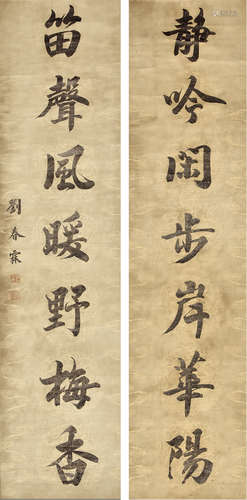 靜吟閑步岸華陽
笛聲風暖野梅香
劉春霖